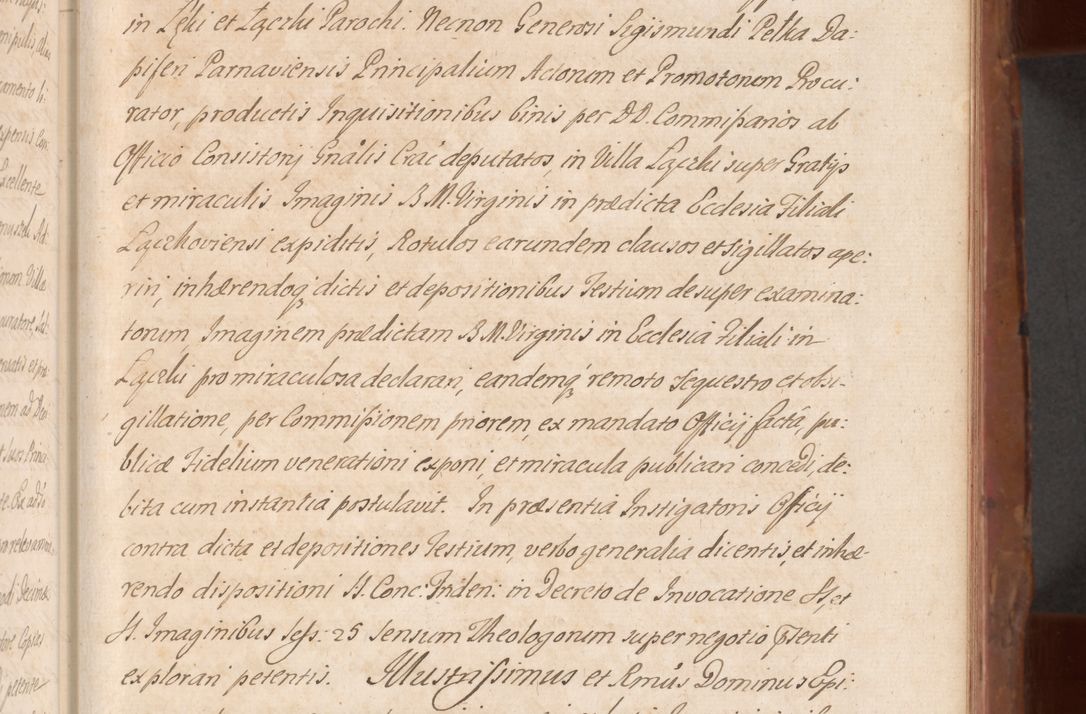 in Lęki et Łączki Parochi. Necnon Generosi Sigismundi Pełka Da:
piferi Parnaviensis Principalium Actorum et Promotorum Procu:
rator, productis Inquisitionibus binis per DD. Commissarios ab
Officio Consistorij Gnâlis Crac̃ deputatos, in Villa Łączki super Gratijs
et miraculis Imaginis B. M. Virginis in prædicta Ecclesia Filiali
Łączkoviensi expiditis, Rotulos earundem clausos et sigillatos ape:
riri, inhærendoq́ dictis et depositionibus Testium desuper examina:
torum Imaginem prædictam B. M. Virginis in Ecclesia Filiali in
Łączki pro miraculosa declarari, eandemq́ remoto sequestro et obsi-
gillatione, per Commissionem priorem, ex mandato Officij factâ, pu:
blicæ Fidelium venerationi exponi, et miracula publicari concedi, de:
bita cum instantia postulavit. In præsentia Instigatoris Officij
contra dicta et depositiones Testium, verbo generalia dicentis, et inhæ-
rendo dispositioni S. Conc: Triden: in Decreto de Invocatione S. et
S. Imaginibus Sess: 25 Sensum Theologorum super negotio p̃senti
explorari petentis. Illustrissimus et Rmûs Dominus Epi: